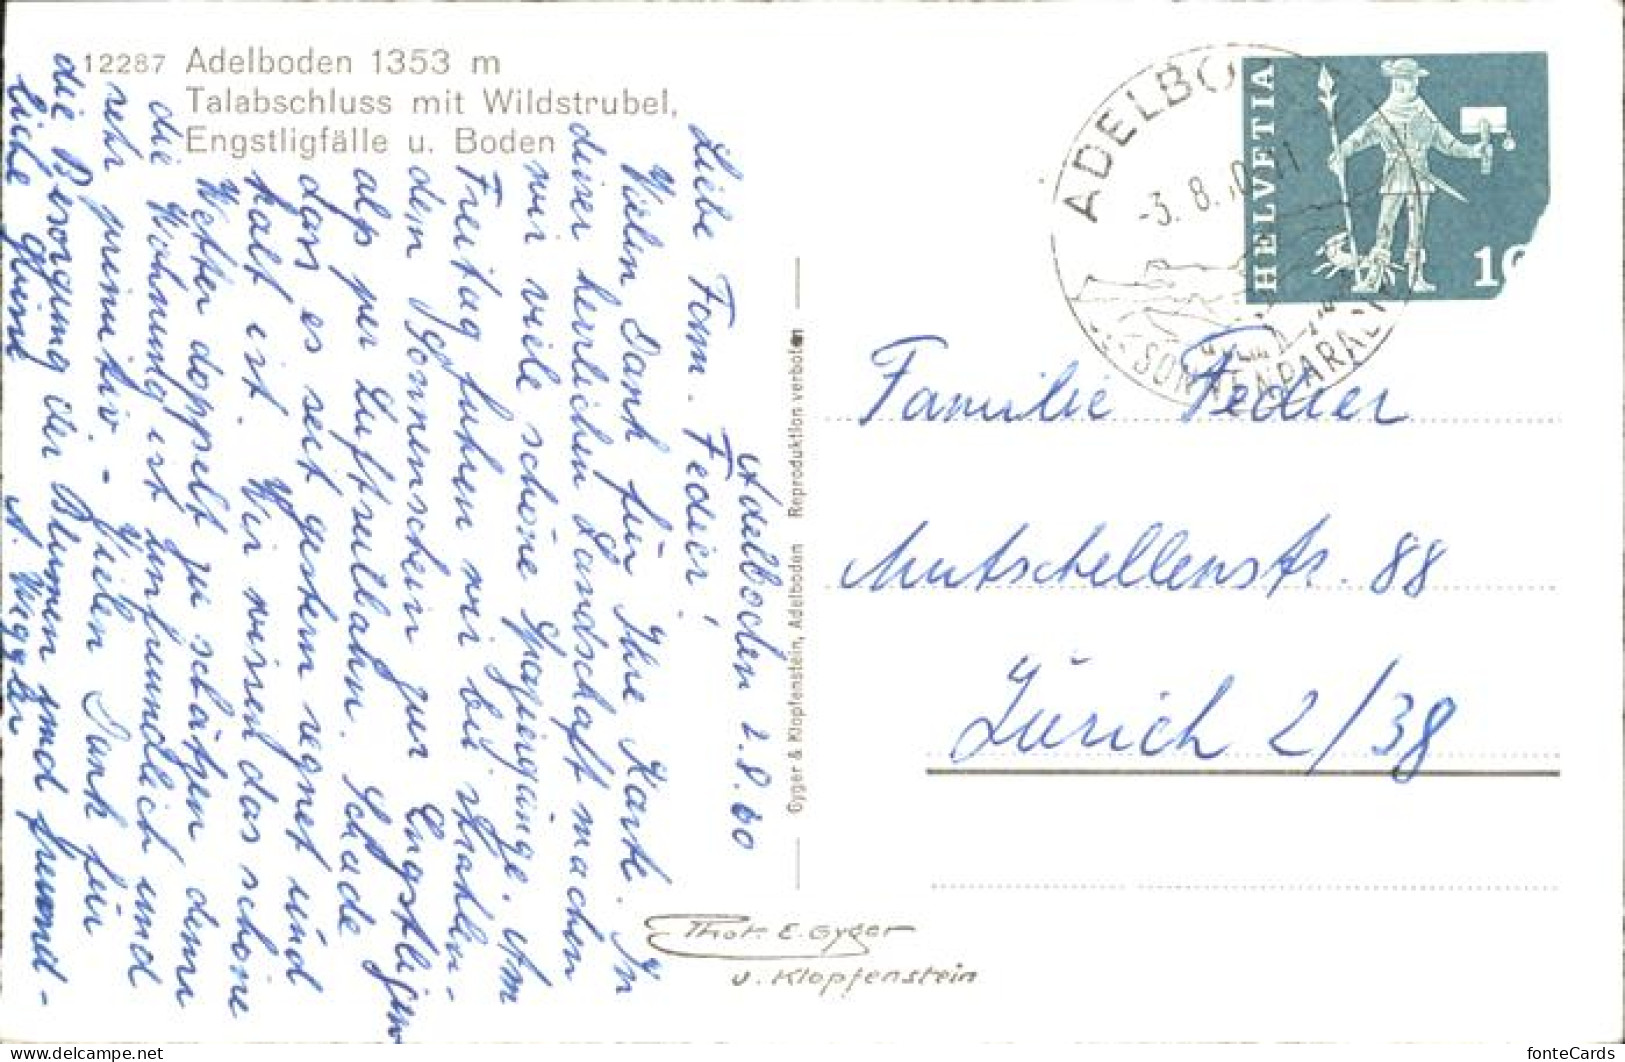 12287 Adelboden 1353 m
Talabschluss mit Wildstrubel,
Engstligfälle u. Boden
Adelboden 2.8.60
Liebe Fam. Fedier!
Vielen Dank für Ihre Karte. In
dieser herrlichen Landschaft machen
wir viele schöne Spaziergänge. Am
Freitag fuhren wir bei strahlen-
dem Sonnenschein zur Engstligen-
alp per Luftseilbahn. Schade
dass es seit gestern regnet und
kalt ist. Wir wissen das schöne
Wetter doppelt zu schätzen denn
die Wohnung ist unfreundlich und
sehr primitiv. - Vielen Dank für
die Besorgung der Blumen und freund-
liche Grüsse A. Waggler
Gyger & Klopfenstein, Adelboden Reproduktion verboten
Phot. E. Gyger
u. Klopfenstein
ADELBO
-3. 8. 60-11
SONNENPARAD
HELVETIA
10
Familie Fedier
Mutschellenstr. 88
Zürich 2/38
fonteCards